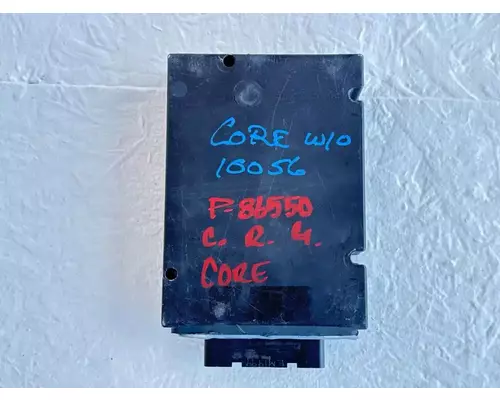 CORE W/O
10056
P-86550
C. R. 4.
CORE